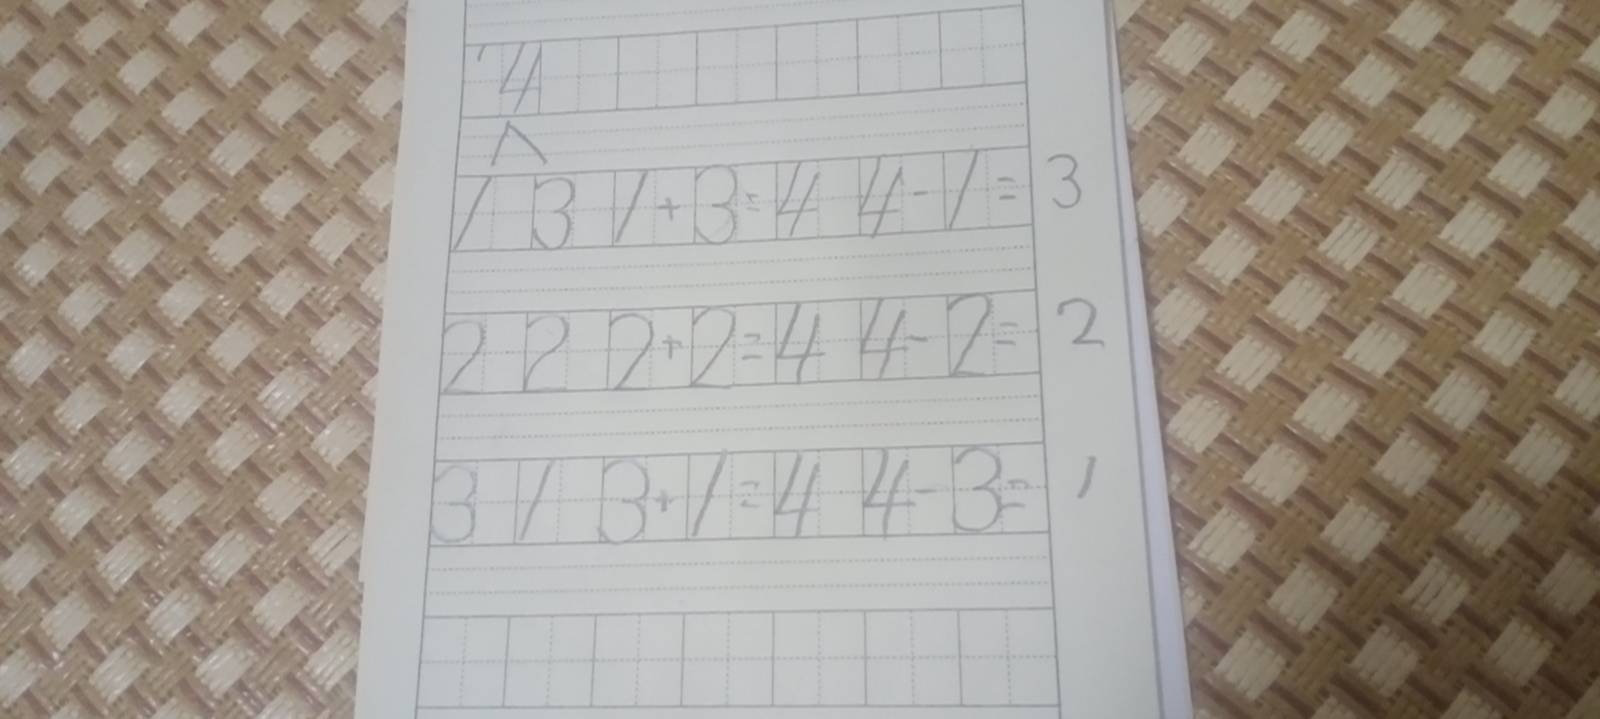 4
∧
1 3 1+3=4 4-1=3
2 2 2+2=4 4-2=2
3 1 3+1=4 4-3=1